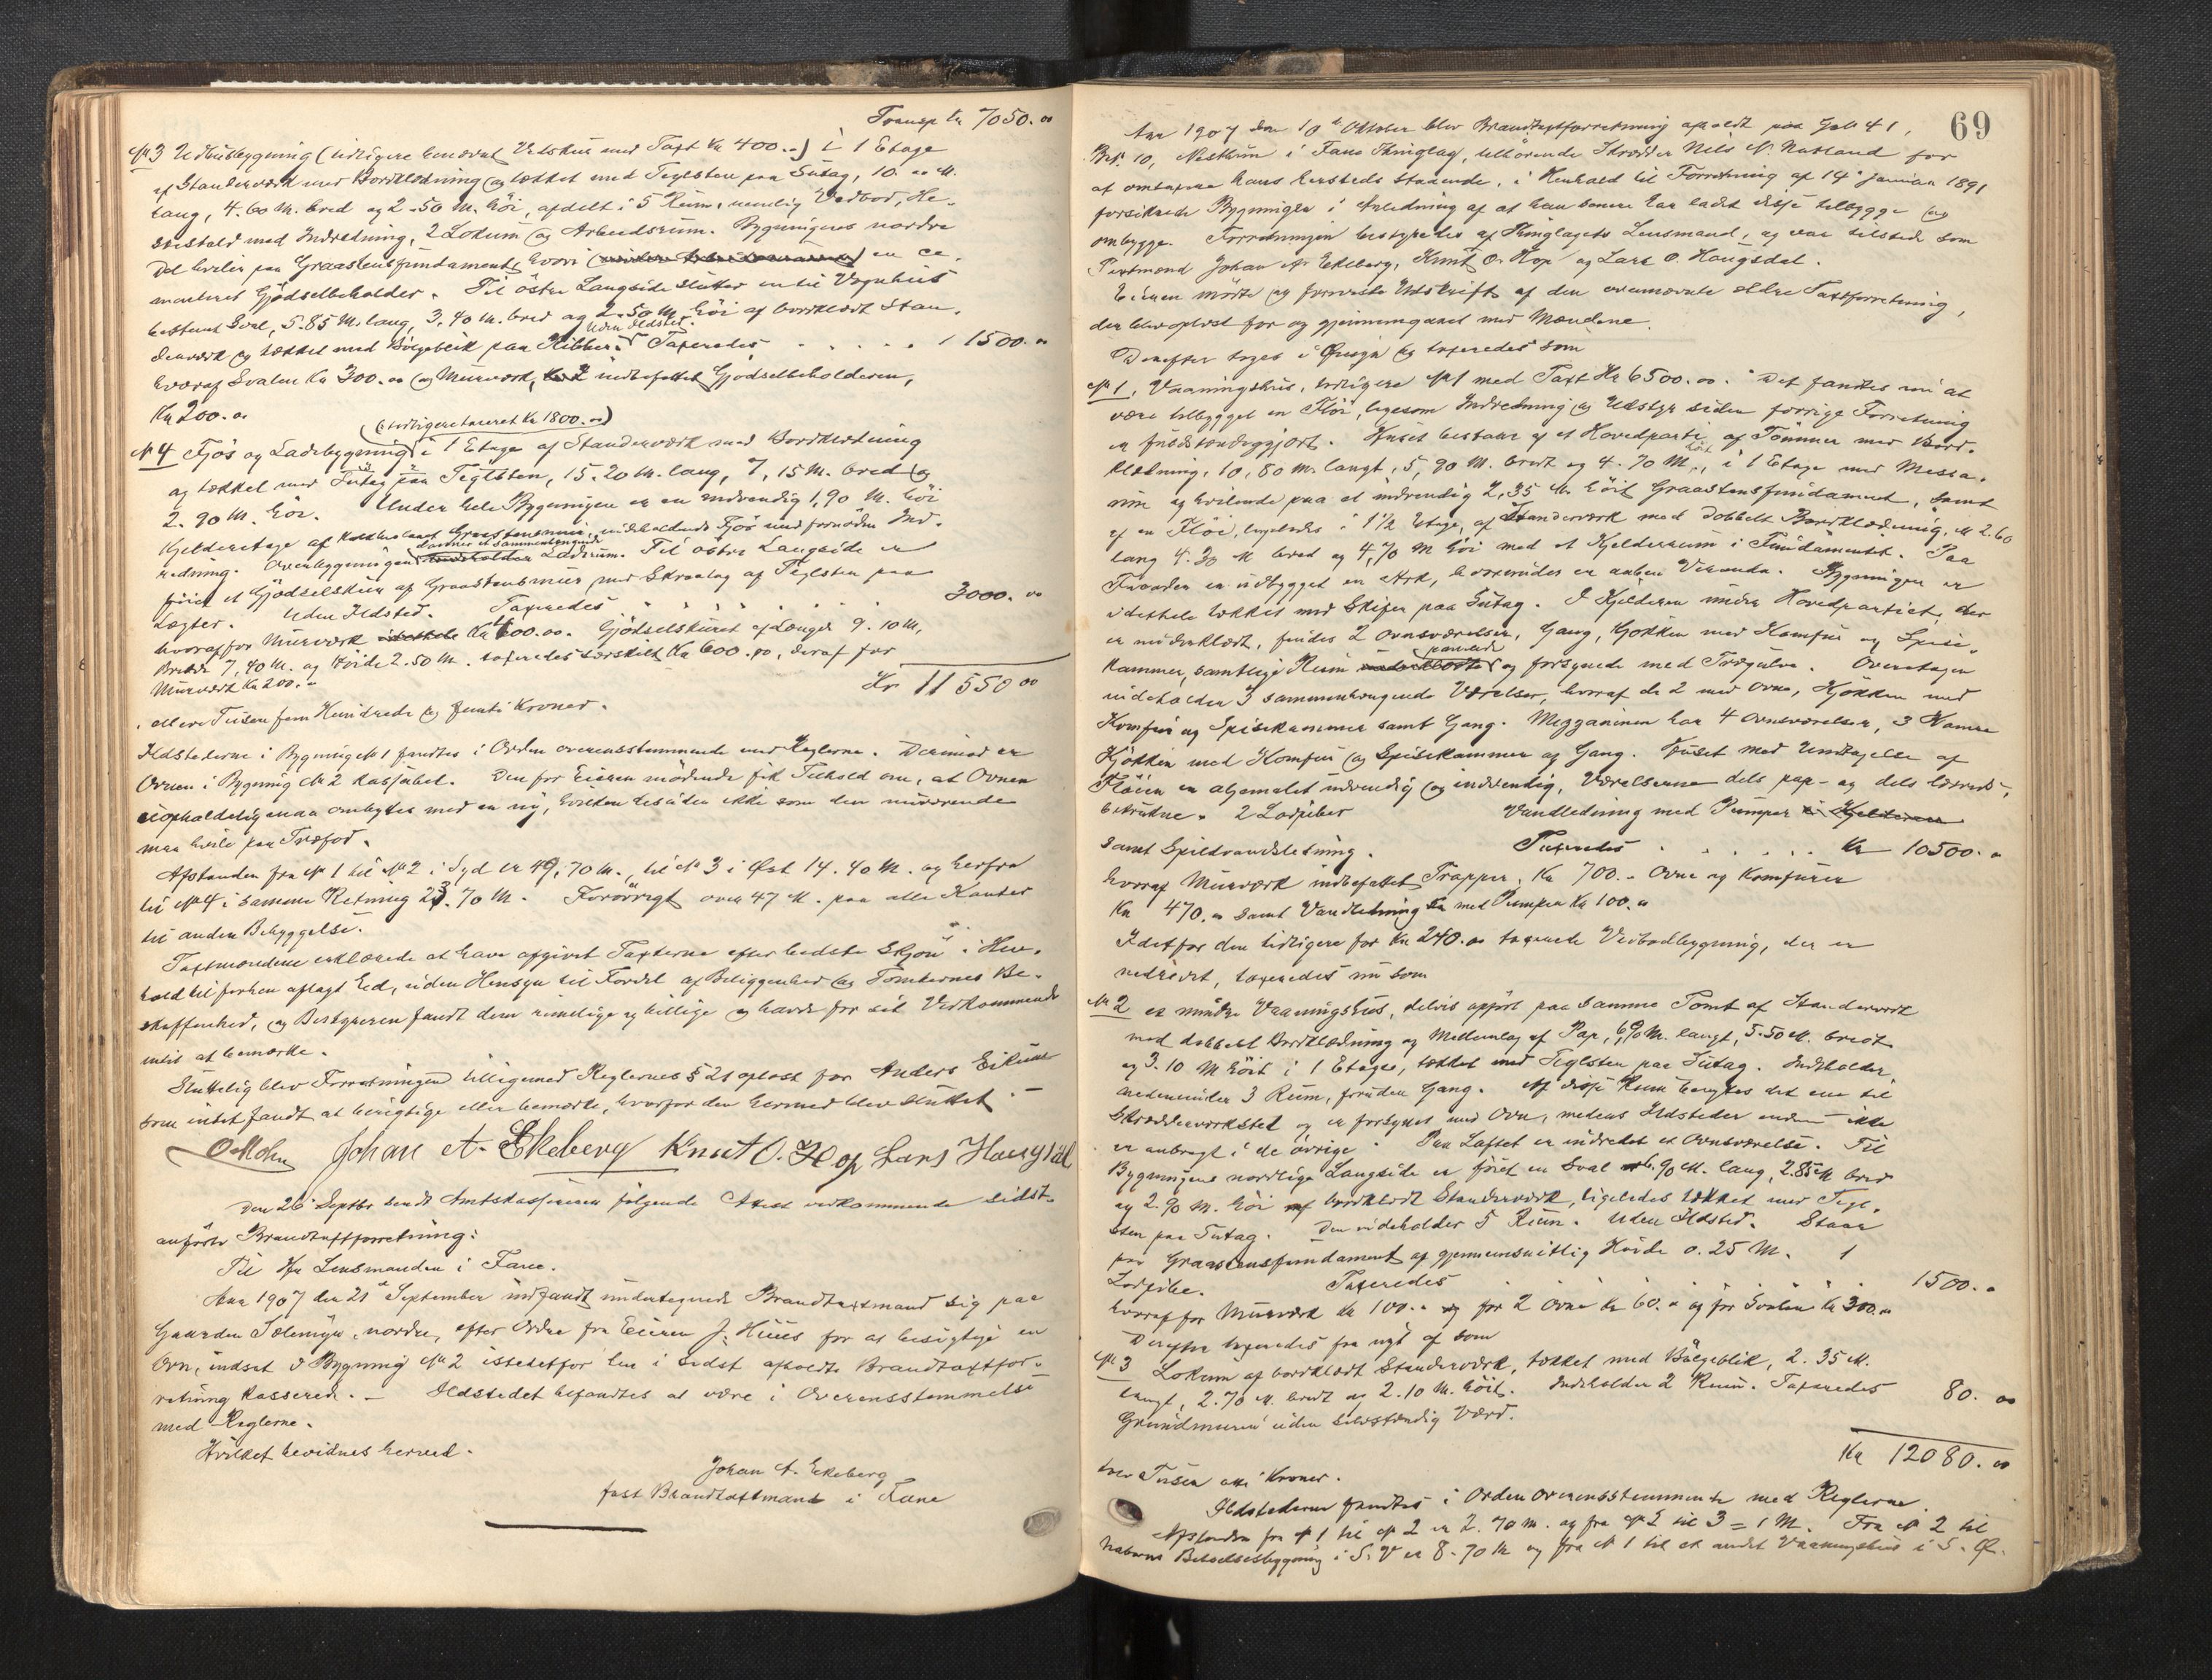 Transp Kr 7050.00
№ 3 Udhusbygning (tidligere benævnt Vedskur med Taxt Kr 400.-) i 1 Etage
af Standerværk med Bordklædning og tækket med Teglsten paa Sutag, 10.00 M.
lang, 4.60 M. bred og 2.50 M. höi, afdelt i 5 Rum, nemlig Vedbod, He-
stestald med Indredning, 2 Lokum og Arbeidsrum. Bygningens nordre
Del hviler paa Graastensfundament, hvori en ce-
menteret Gjödselbeholder. Til östre Langside slutter en til Vognhus
bestemt Sval, 5.85 M. lang, 3,40 M. bred og 2.50 M. höi af bordklædt Stan-
uden Ildsted.
derværk og tækket med Bölgeblik paa Ribber. Taxeredes . . . . . 1500.00
hvoraf Svalen Kr 300.00 og Murværk, indbefattet Gjödselbeholderen,
Kr 200.00
(tidligere taxeret Kr 1800.00)
№ 4 Fjös og Ladebygning i 1 Etage af Standerværk med Bordklædning
og tækket med Sutag paa Teglsten, 15.20 M. lang, 7,15 M. bred og
2.90 M. höi. Under hele Bygningen er en indvendig 1,90 M. höi
Kjelderetage af Graastensmur, indeholdende Fjös med fornöden Ind-
danner et sammenhængende
redning. Overbygningen Laderum. Til östre Langside er
föiet et Gjödselskur af Graastensmur med Skraatag af Teglsten paa
Lægter. Uden Ildsted. Taxeredes . . . . . . 3000.00
hvoraf for Murværk Kr 600.00. Gjödselskuret af Længde 9.10 M,
Bredde 7,40 M. og Höide 2.50 M. taxeredes særskilt Kr 600.00, deraf for
Murværk Kr 200.-
Kr 11550 00
elleve Tusen fem Hundrede og femti Kroner.
Ildstederne i Bygning № 1 fandtes i Orden overensstemmende med Reglerne. Derimod er
Ovnen i Bygning № 2 kassabel. Den for Eieren mödende fik Tilhold om, at Ovnen
uopholdelig maa ombyttes med en ny, hvilken desuden ikke som den nuværende
maa hvile paa Træfod.
Afstanden fra № 1 til № 2 i Syd er 49,70 M., til № 3 i Öst 14.40 M. og herfra
til № 4 i samme Retning 23.70 M. Forövrigt over 47 M. paa alle Kanter
til anden Bebyggelse.
Taxtmændene erklærede at have afgivet Taxterne efter bedste Skjön i Hen-
hold til forhen aflagt Ed, uden Hensyn til Fordel af Beliggenhed og Tomternes Be-
skaffenhed, og Bestyreren fandt dem rimelige og billige og havde for sit Vedkommende
intet at bemærke.
Sluttelig blev Forretningen tilligemed Reglernes § 21 oplæst for Anders
som intet fandt at berigtige eller bemærke, hvorfor den hermed blev sluttet. —
O Mohn Johan A. Ekeberg Knut O. Hop Lars Haugsdal
Den 26 Septbr sendt Amtskassereren fölgende Attest vedkommende sidst-
anförte Brandtaxtforretning:
Til Hr Lensmanden i Fane.
Aar 1907 den 21de September indfandt undertegnede Brandtaxtmand sig paa
Gaarden Sælemyr, nordre, efter Ordre fra Eieren J. Huus for at besigtige en
Ovn, indsat i Bygning № 2 istedetfor den i sidst afholdte Brandtaxtfor-
retning kasserede. — Ildstedet befandtes at være i Overensstemmelse
med Reglerne.
Hvilket bevidnes herved.
Johan A. Ekeberg
fast Brandtaxtmand i Fane
69
Aar 1907 den 10de Oktober blev Brandtaxtforretning afholdt paa G.No 41,
Br.No 10, Nesttun i Fane Thinglag, tilhörende Skrædder Nils N. Natland for
at omtaxere hans hersteds staaende, i Henhold til Forretning af 14de Januar 1891
forsikrede Bygninger i Anledning af at han senere har ladet disse tilbygge og
ombygge. Forretningen bestyredes af Thinglagets Lensmand, og var tilstede som
Taxtmænd Johan A. Ekeberg, Knut O. Hop og Lars O. Haugsdal.
Eieren mödte og foreviste Udskrift af den ovennævnte ældre Taxtforretning,
der blev oplæst for og gjennemgaaet med Mændene.
Derefter toges i Öiesyn og taxeredes som
№ 1, Vaaningshus, tidligere № 1 med Taxt Kr 6500.00. Det fandtes nu at
være tilbygget en Flöi, ligesom Indredning og Udstyr siden forrige Forretning
er fuldstændiggjort. Huset bestaar af et Hovedparti af Tömmer med Bord-
höit
klædning, 10,80 M. langt, 5,90 M. bredt og 4.70 M., i 1 Etage med Messa-
nin og hvilende paa et indvendig 2,35 M. höit Graastensfundament, samt
af en Flöi, ligeledes i 1½ Etage, af Standerværk med dobbelt Bordklædning, M 2.60
lang 4.30 M bred og 4,70 M höi med et Kjelderrum i Fundamentet. Paa
Facaden er udbygget en Ark, hvorunder er aaben Veranda. Bygningen er
idethele tækket med Skifer paa Sutag. I Kjelderen under Hovedpartiet, der
er underklædt, findes 2 Ovnsværelser, Gang, Kökken med Komfur og Spise-
panelede
kammer, samtlige Rum og forsynede med Trægulve. Overetagen
indeholder 3 sammenhængende Værelser, hvoraf de 2 med Ovne, Kjökken med
Komfur og Spisekammer samt Gang. Mezzaninen har 4 Ovnsværelser, 3 Kamre
Kjökken med Komfur og Spisekammer og Gang. Huset med Undtagelse af
Flöien er oljemalet udvendig og indvendig, Værelserne dels pap- og dels lærreds-
betrukne. 2 Lodpiber Vandledning med Pumper i Kjelderen
samt Spildvandsledning. Taxeredes . . . . . . Kr 10500.00
hvoraf Murværk indbefattet Trapper, Kr 700.- Ovne og Komfurer
Kr 470.00 samt Vandledning med Pumper Kr 100.00
Istedetfor den tidligere for Kr 240.00 taxerede Vedbodbygning, der er
nedrevet, taxeredes nu som
№ 2 et mindre Vaaningshus, delvis opfört paa samme Tomt af Standerværk
med dobbelt Bordklædning og Mellemlag af Pap, 6,90 M. langt, 5.50 M. bredt
og 3.10 M höit i 1 Etage, tækket med Teglsten paa Sutag. Indeholder
nedenunder 3 Rum, foruden Gang. Af disse Rum benyttes det ene til
Skrædderværksted og er forsynet med Ovn, medens Ildsteder endnu ikke
er anbragt i de övrige. Paa Loftet er indredet et Ovnsværelse. Til
Bygningens nordlige Langside er föiet en Sval 6.90 M. lang, 2.85 M bred
og 2.90 M. höi af bordklædt Standerværk, ligeledes tækket med Tegl-
sten paa Sutag. Den indeholder 5 Rum. Uden Ildsted. Staar
paa Graastensfundament af gjennemsnitlig Höide 0.25 M. 1
Lodpibe. Taxeredes . . . . . . . 1500.00
hvoraf for Murværk Kr 100.- og for 2 Ovne Kr 60.- og for Svalen Kr 300.00
Derefter taxeredes fra nyt af som
№ 3 Lokum af bordklædt Standerværk, tækket med Bölgeblik, 2.35 M.
langt, 2.70 M. bredt og 2.10 M. höit. Indeholder 2 Rum. Taxeredes 80.00
Grundmuren uden selvstændig Værd.
Kr 12080.00
tolv Tusen otti Kroner.
Ildstederne fandtes i Orden overensstemmende med Reglerne.
Afstanden fra № 1 til № 2 er 2.70 M. og fra № 2 til 3 = 1 M. Fra № 2 til
Naboens Beboelsesbygning i S. V er 8.70 M og fra № 1 til et andet Vaaningshus i S. Ö.